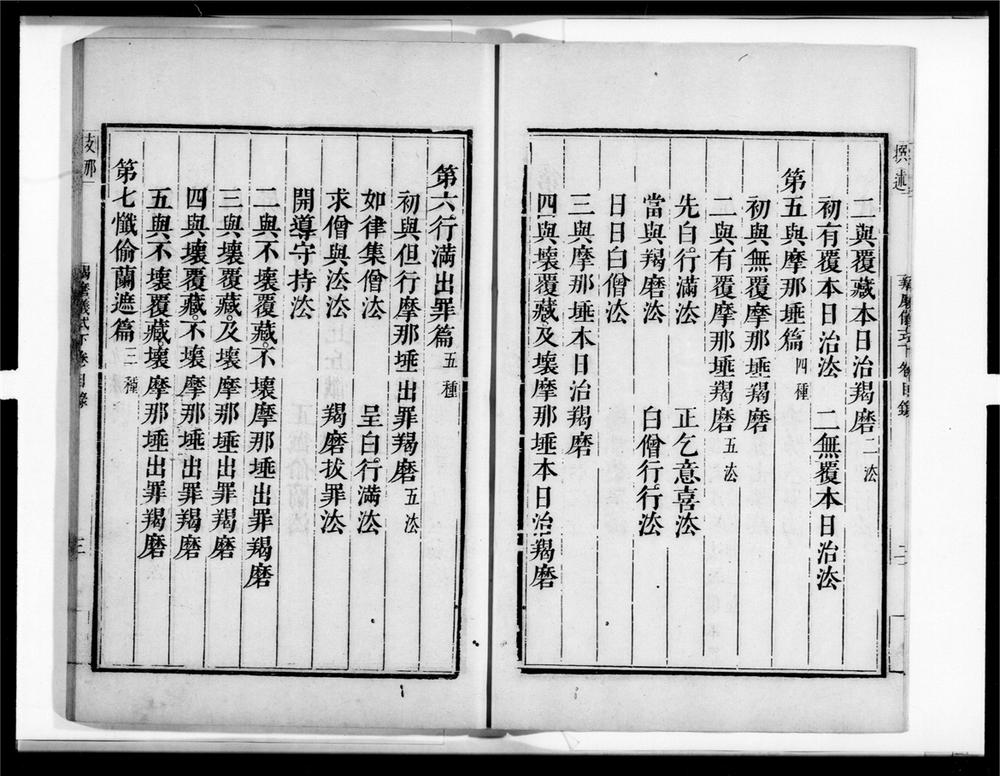 撰述
二與覆藏本日治羯磨二法
初有覆本日治法 二無覆本日治法
第五與摩那埵篇四種
初與無覆摩那埵羯磨
二與有覆摩那埵羯磨五法
先白行滿法 正乞意喜法
當與羯磨法 白僧行行法
日日白僧法
三與摩那埵本日治羯磨
四與壞覆藏及壞摩那埵本日治羯磨
第六行滿出罪篇五種
初與但行摩那埵出罪羯磨五法
如律集僧法 呈白行滿法
求僧與法法 羯磨拔罪法
開導守持法
二與不壞覆藏不壞摩那埵出罪羯磨
三與壞覆藏及壞摩那埵出罪羯磨
四與壞覆藏不壞摩那埵出罪羯磨
五與不壞覆藏壞摩那埵出罪羯磨
第七懺偷蘭遮篇三種